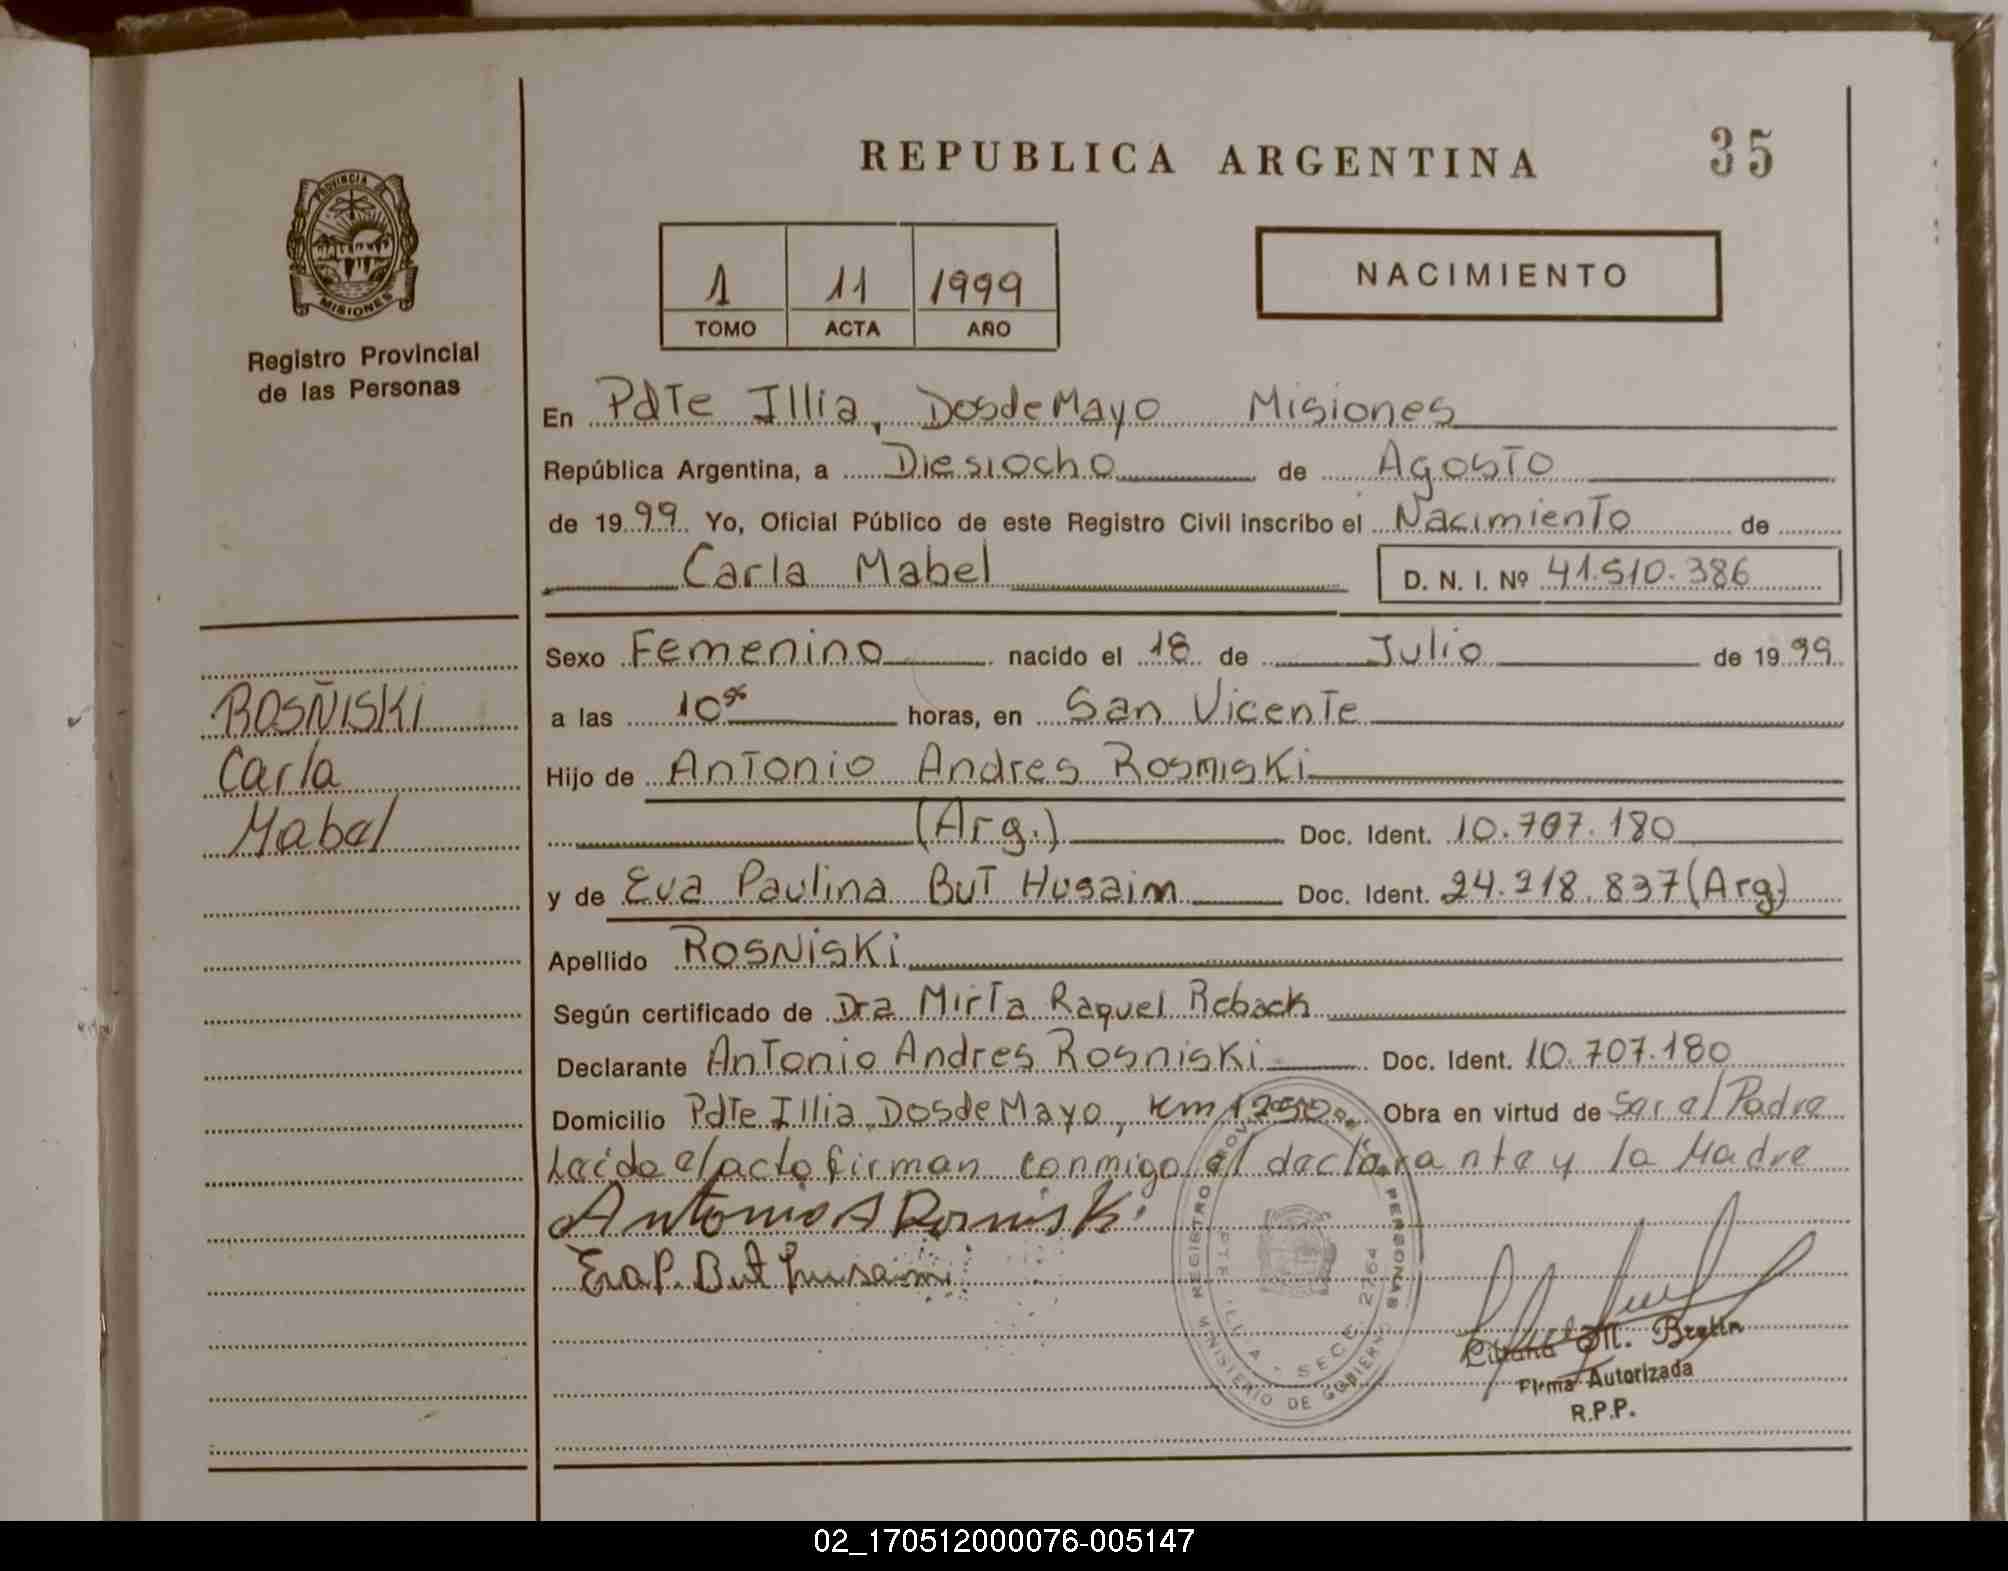 REPUBLICA ARGENTINA
35
PROVINCIA DE
MISIONES
Registro Provincial
de las Personas
1 11 1999
TOMO ACTA AÑO
NACIMIENTO
En Pdte Illia, Dos de Mayo Misiones
República Argentina, a Diesiocho de Agosto
de 1999 Yo, Oficial Público de este Registro Civil inscribo el Nacimiento de
Carla Mabel D. N. I. Nº 41.510.386
Sexo Femenino nacido el 18 de Julio de 1999
a las 10 horas, en San Vicente
Hijo de Antonio Andres Rosmiski
(Arg.) Doc. Ident. 10.707.180
y de Eva Paulina But Husaim Doc. Ident. 24.218.837 (Arg)
Apellido Rosniski
Según certificado de Dra Mirta Raquel Roback
Declarante Antonio Andres Rosniski Doc. Ident. 10.707.180
Domicilio Pdte Illia, Dos de Mayo, Km 1250 Obra en virtud de Ser el Padre
Leido el acto firman conmigo el declarante y la Madre
Antonio A Rosniski
Eva P. But Husaim
ROSÑISKI
Carla
Mabel
REGISTRO PERSONAS
MINISTERIO DE GOBIERNO
PTE. ILLIA - SECC. 2764
Liliana M.
Firma Autorizada
R.P.P.
02_170512000076-005147